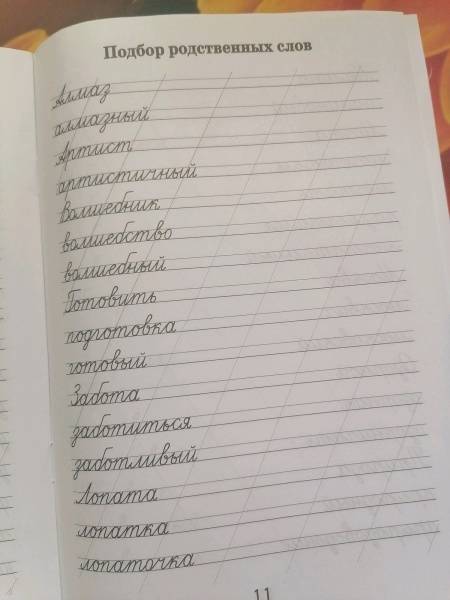 Подбор родственных слов
Алмаз
алмазный
Артист
артистичный
Волшебник
волшебство
волшебный
Готовить
подготовка
готовый
Забота
заботиться
заботливый
Лопата
лопатка
лопаточка
11